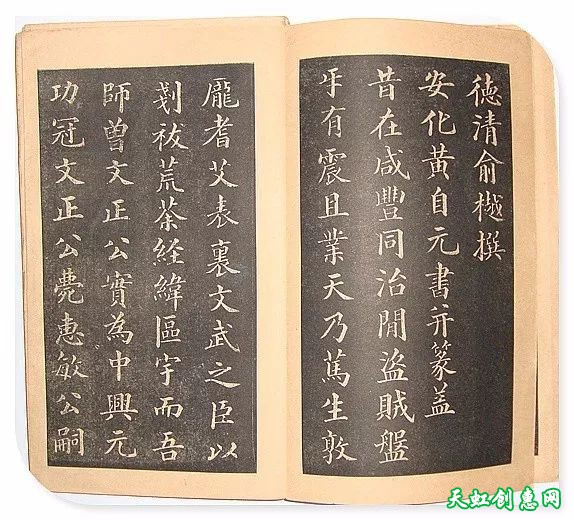 德清俞樾撰
安化黃自元書并篆蓋
昔在咸豐同治閒盜賊盤
牙有震且業天乃篤生敦
龐耆艾表裏文武之臣以
剗祓荒荼経緯區宇而吾
師曾文正公實為中興元
功冠文正公薨惠敏公嗣
天虹创惠网